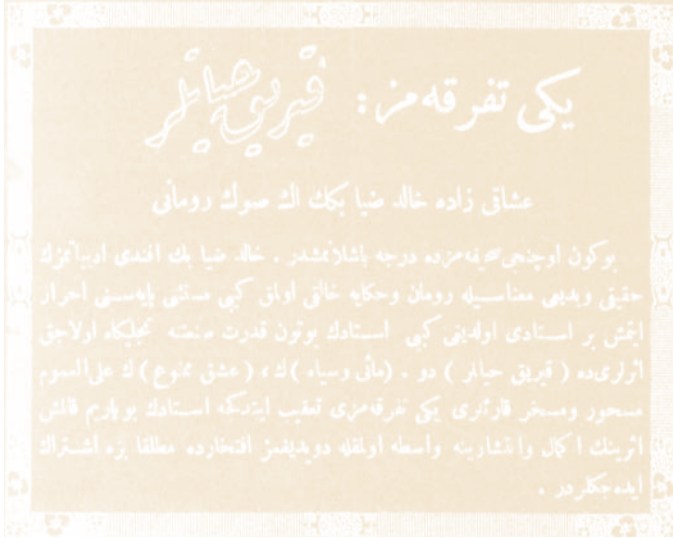 یكی تفرقه‌مز : قیریق حیاتلر
عشاقی زاده خالد ضیا بكك اڭ صوڭ رومانی
بوكون اوچنجی صحیفه‌مزده درجه باشلانمشدر . خالد ضیا بك افندی ادبیاتمزك
حقیقی و بدیعی معناسیله رومان وحكایه خالقی اولمق كبی مستثنی پایه‌سنی احراز
ایتمش بر استادی اولدیغی كبی استادك بوتون قدرت صنعتنه تجلیكاه اولاجق
اثرلری‌ده ( قیریق حیاتلر ) در . ( مائی وسیاه ) ك ، ( عشق ممنوع ) ك علی‌العموم
مسحور ومسخر قارئلری یكی تفرقه‌مزی تعقیب ایتدكجه استادك بو یاریم قالمش
اثرینك اكمال وانتشارینه واسطه اولمقله دویدیغمز افتخارده مطلقا بزه اشتراك
ایده‌جكلردر .